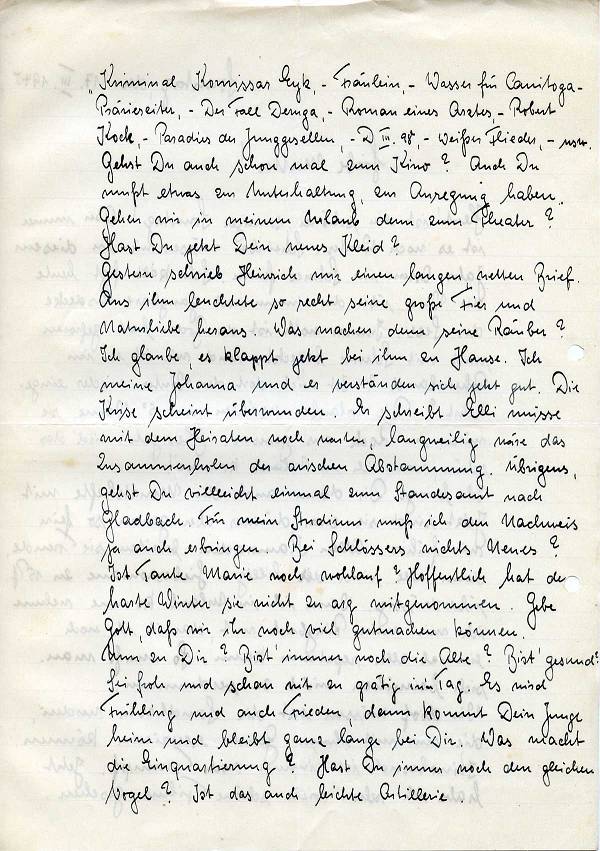 „Kriminal Komissar Eyk, - Fräulein, - Wasser für Canitoga -
Präriereiter, - Der Fall Deruga, - Roman eines Arztes, - Robert
Kock, - Paradies der Junggesellen, - D III 98, - Weißer Flieder, - usw.
Gehst Du auch schon mal zum Kino? Auch Du
mußt etwas zur Unterhaltung, zur Anregung haben.
Gehen wir in meinem Urlaub denn zum Theater?
Hast Du jetzt Dein neues Kleid?
Gestern schrieb Heinrich mir einen langen netten Brief.
Aus ihm leuchtete so recht seine große Tier und
Naturliebe heraus. Was machen denn seine Räuber?
Ich glaube, es klappt jetzt bei ihm zu Hause. Ich
meine Johanna und er verständen sich jetzt gut. Die
Krise scheint überwunden. Er schreibt Elli müsse
mit dem Heiraten noch warten, langweilig wäre das
Zusammenholen der arischen Abstammung. Übrigens,
gehst Du villeicht einmal zum Standesamt nach
Gladbach. Für mein Studium muß ich den Nachweis
ja auch erbringen. Bei Schlössers nichts Neues?
Ist Tante Marie noch wohlauf? Hoffentlich hat der
harte Winter sie nicht zu arg mitgenommen. Gebe
Gott, daß wir ihr noch viel gutmachen können.
Nun zu Dir? Bist' immer noch die Alte? Bist' gesund?
Sei froh und schau nit zu grätig in'n Tag. Es wird
Frühling und auch Frieden dann kommt Dein Junge
heim und bleibt ganz lange bei Dir. Was macht
die Einquartierung? Hast Du immer noch den gleichen
Vogel? Ist das auch leichte Artillerie.